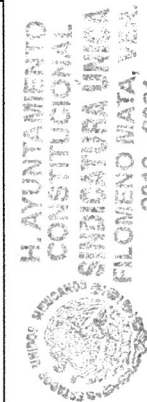 H. AYUNTAMIENTO
CONSTITUCIONAL
SINDICATURA ÚNICA
FILOMENO MATA, VER.
ESTADOS UNIDOS MEXICANOS